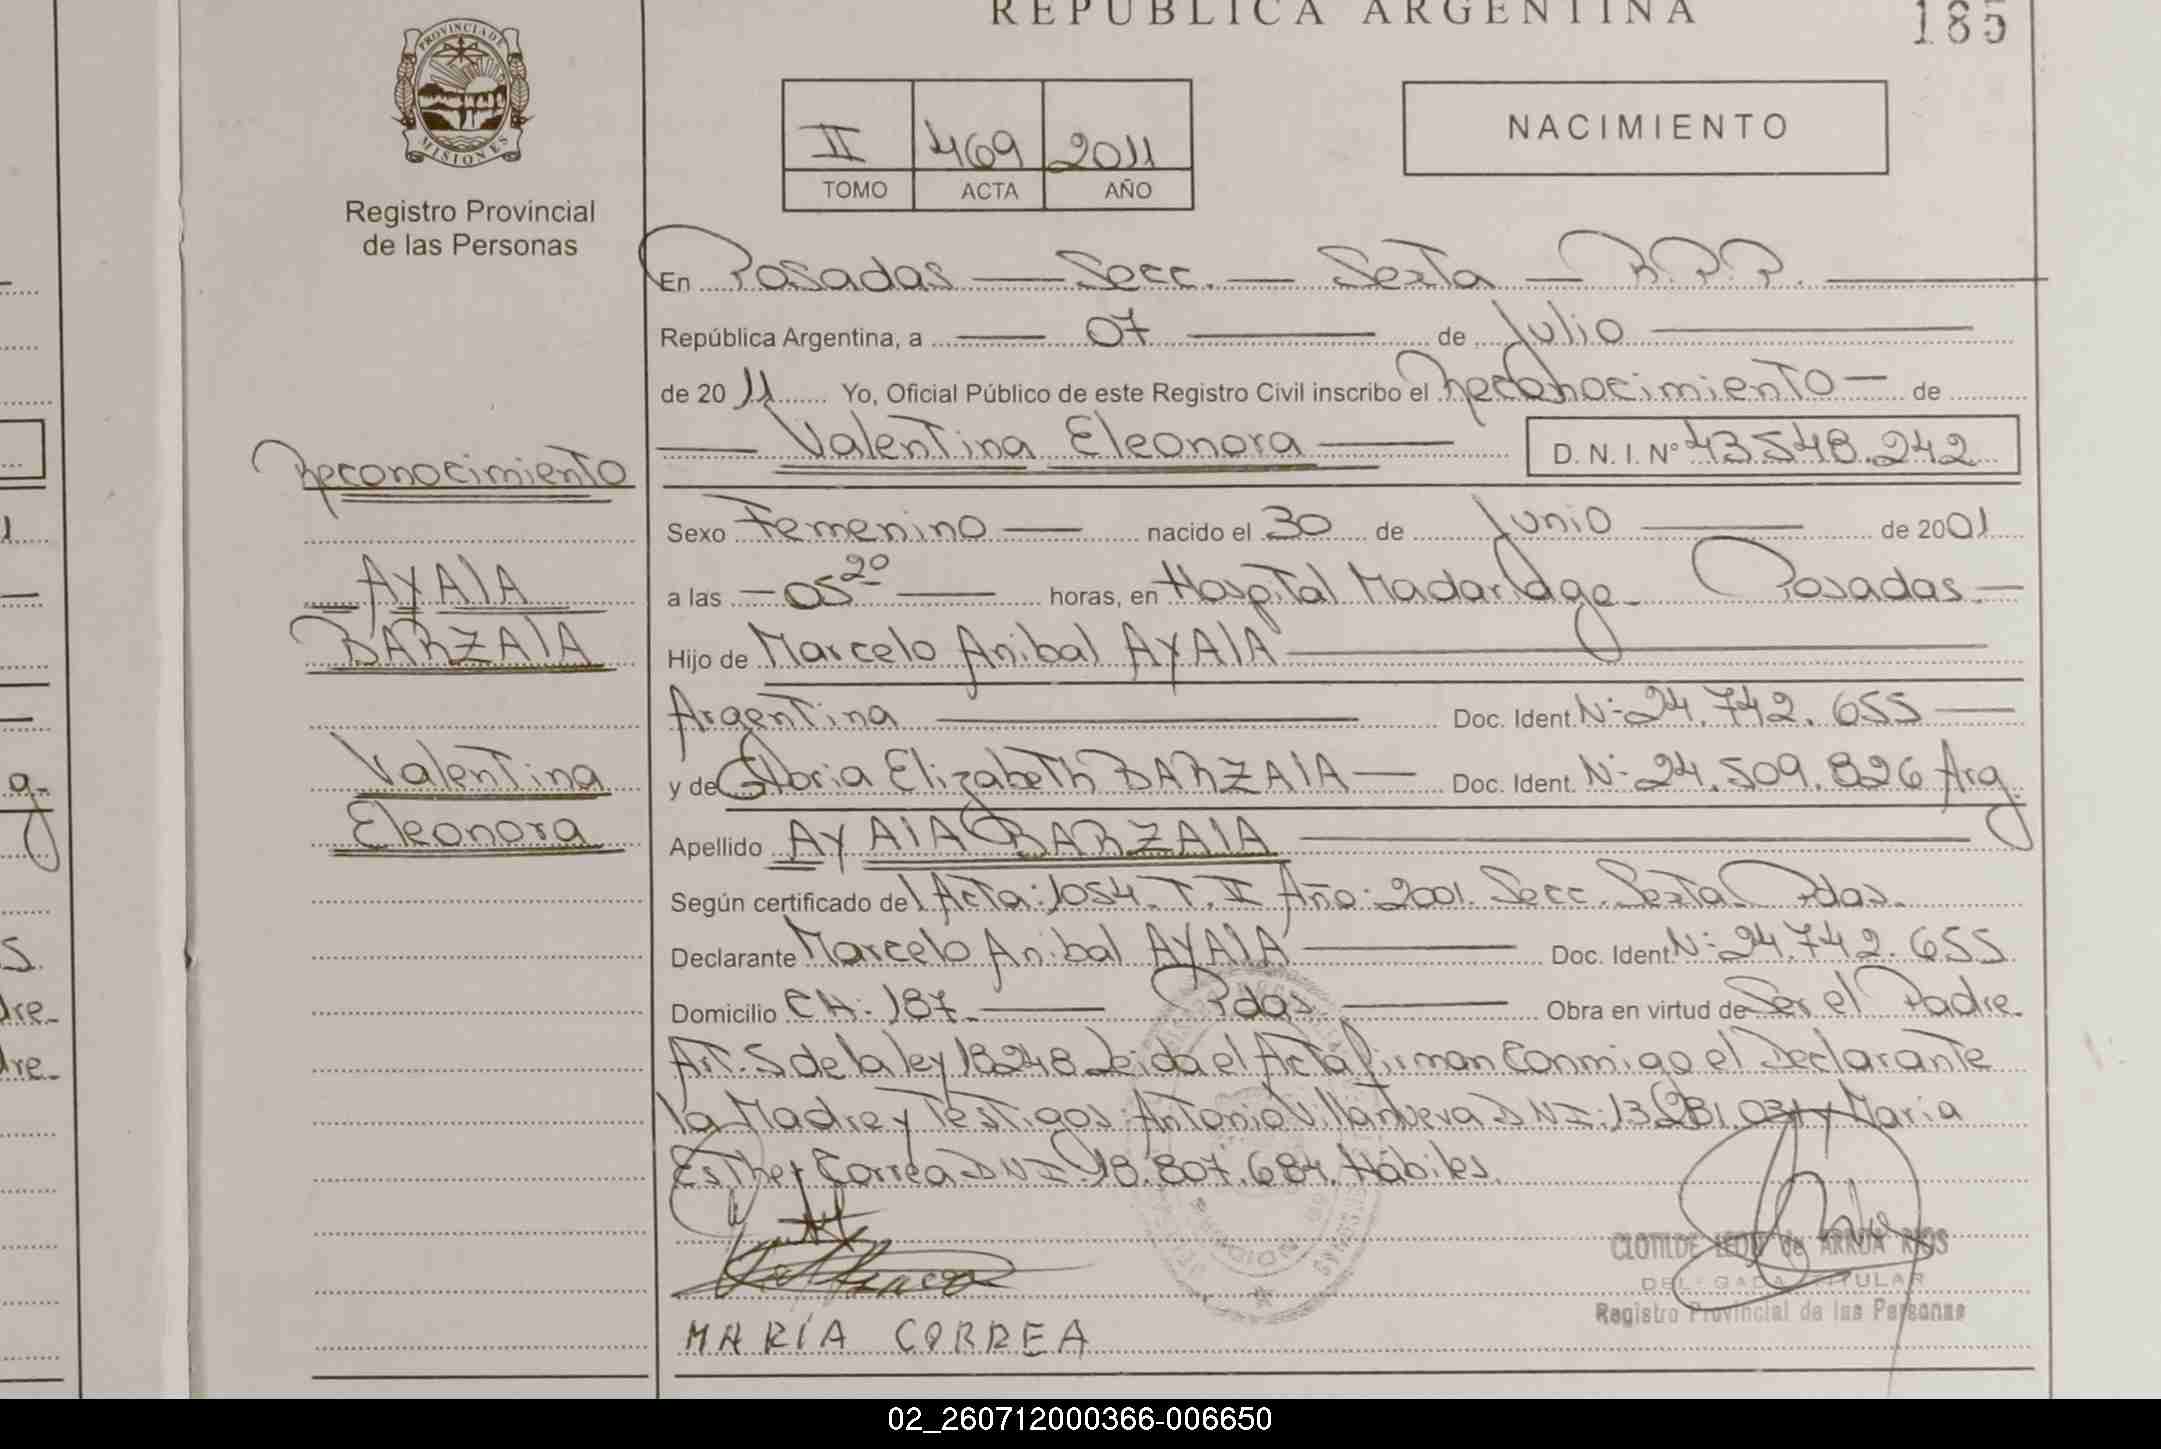 REPUBLICA ARGENTINA
185
PROVINCIA DE
MISIONES
Registro Provincial
de las Personas
II 469 2011
TOMO ACTA AÑO
NACIMIENTO
En Posadas — Secc. — Sexta — R.P.P.
República Argentina, a — 07 — de Julio
de 2011 Yo, Oficial Público de este Registro Civil inscribo el Reconocimiento — de
— Valentina Eleonora — D. N. I. Nº 43.548.242
Reconocimiento
AYALA
BARZALA
Valentina
Eleonora
Sexo Femenino — nacido el 30 de Junio — de 2001
a las — 05 20 — horas, en Hospital Madariaga - Posadas —
Hijo de Marcelo Anibal AYALA —
Argentina — Doc. Ident. Nº 24.742.655 —
y de Gloria Elizabeth BARZALA — Doc. Ident. Nº 24.509.826 Arg.
Apellido AYALA BARZALA —
Según certificado del Acta: 1054. T. II Año: 2001. Secc. Sexta Pdas.
Declarante Marcelo Anibal AYALA — Doc. Ident. Nº 24.742.655
Domicilio CH: 187 — Pdas — Obra en virtud de Ser el Padre
Art. 5 de la ley 18248 Leida el Acta firman Conmigo el Declarante
la Madre y Testigos: Antonio Villanueva DNI: 13.281.031 y Maria
Esther Correa DNI: 18.807.684. Hábiles.
CLOTILDE LEON de ARRUA RIOS
DELEGADA TITULAR
Registro Provincial de las Personas
MARÍA CORREA
02_260712000366-006650